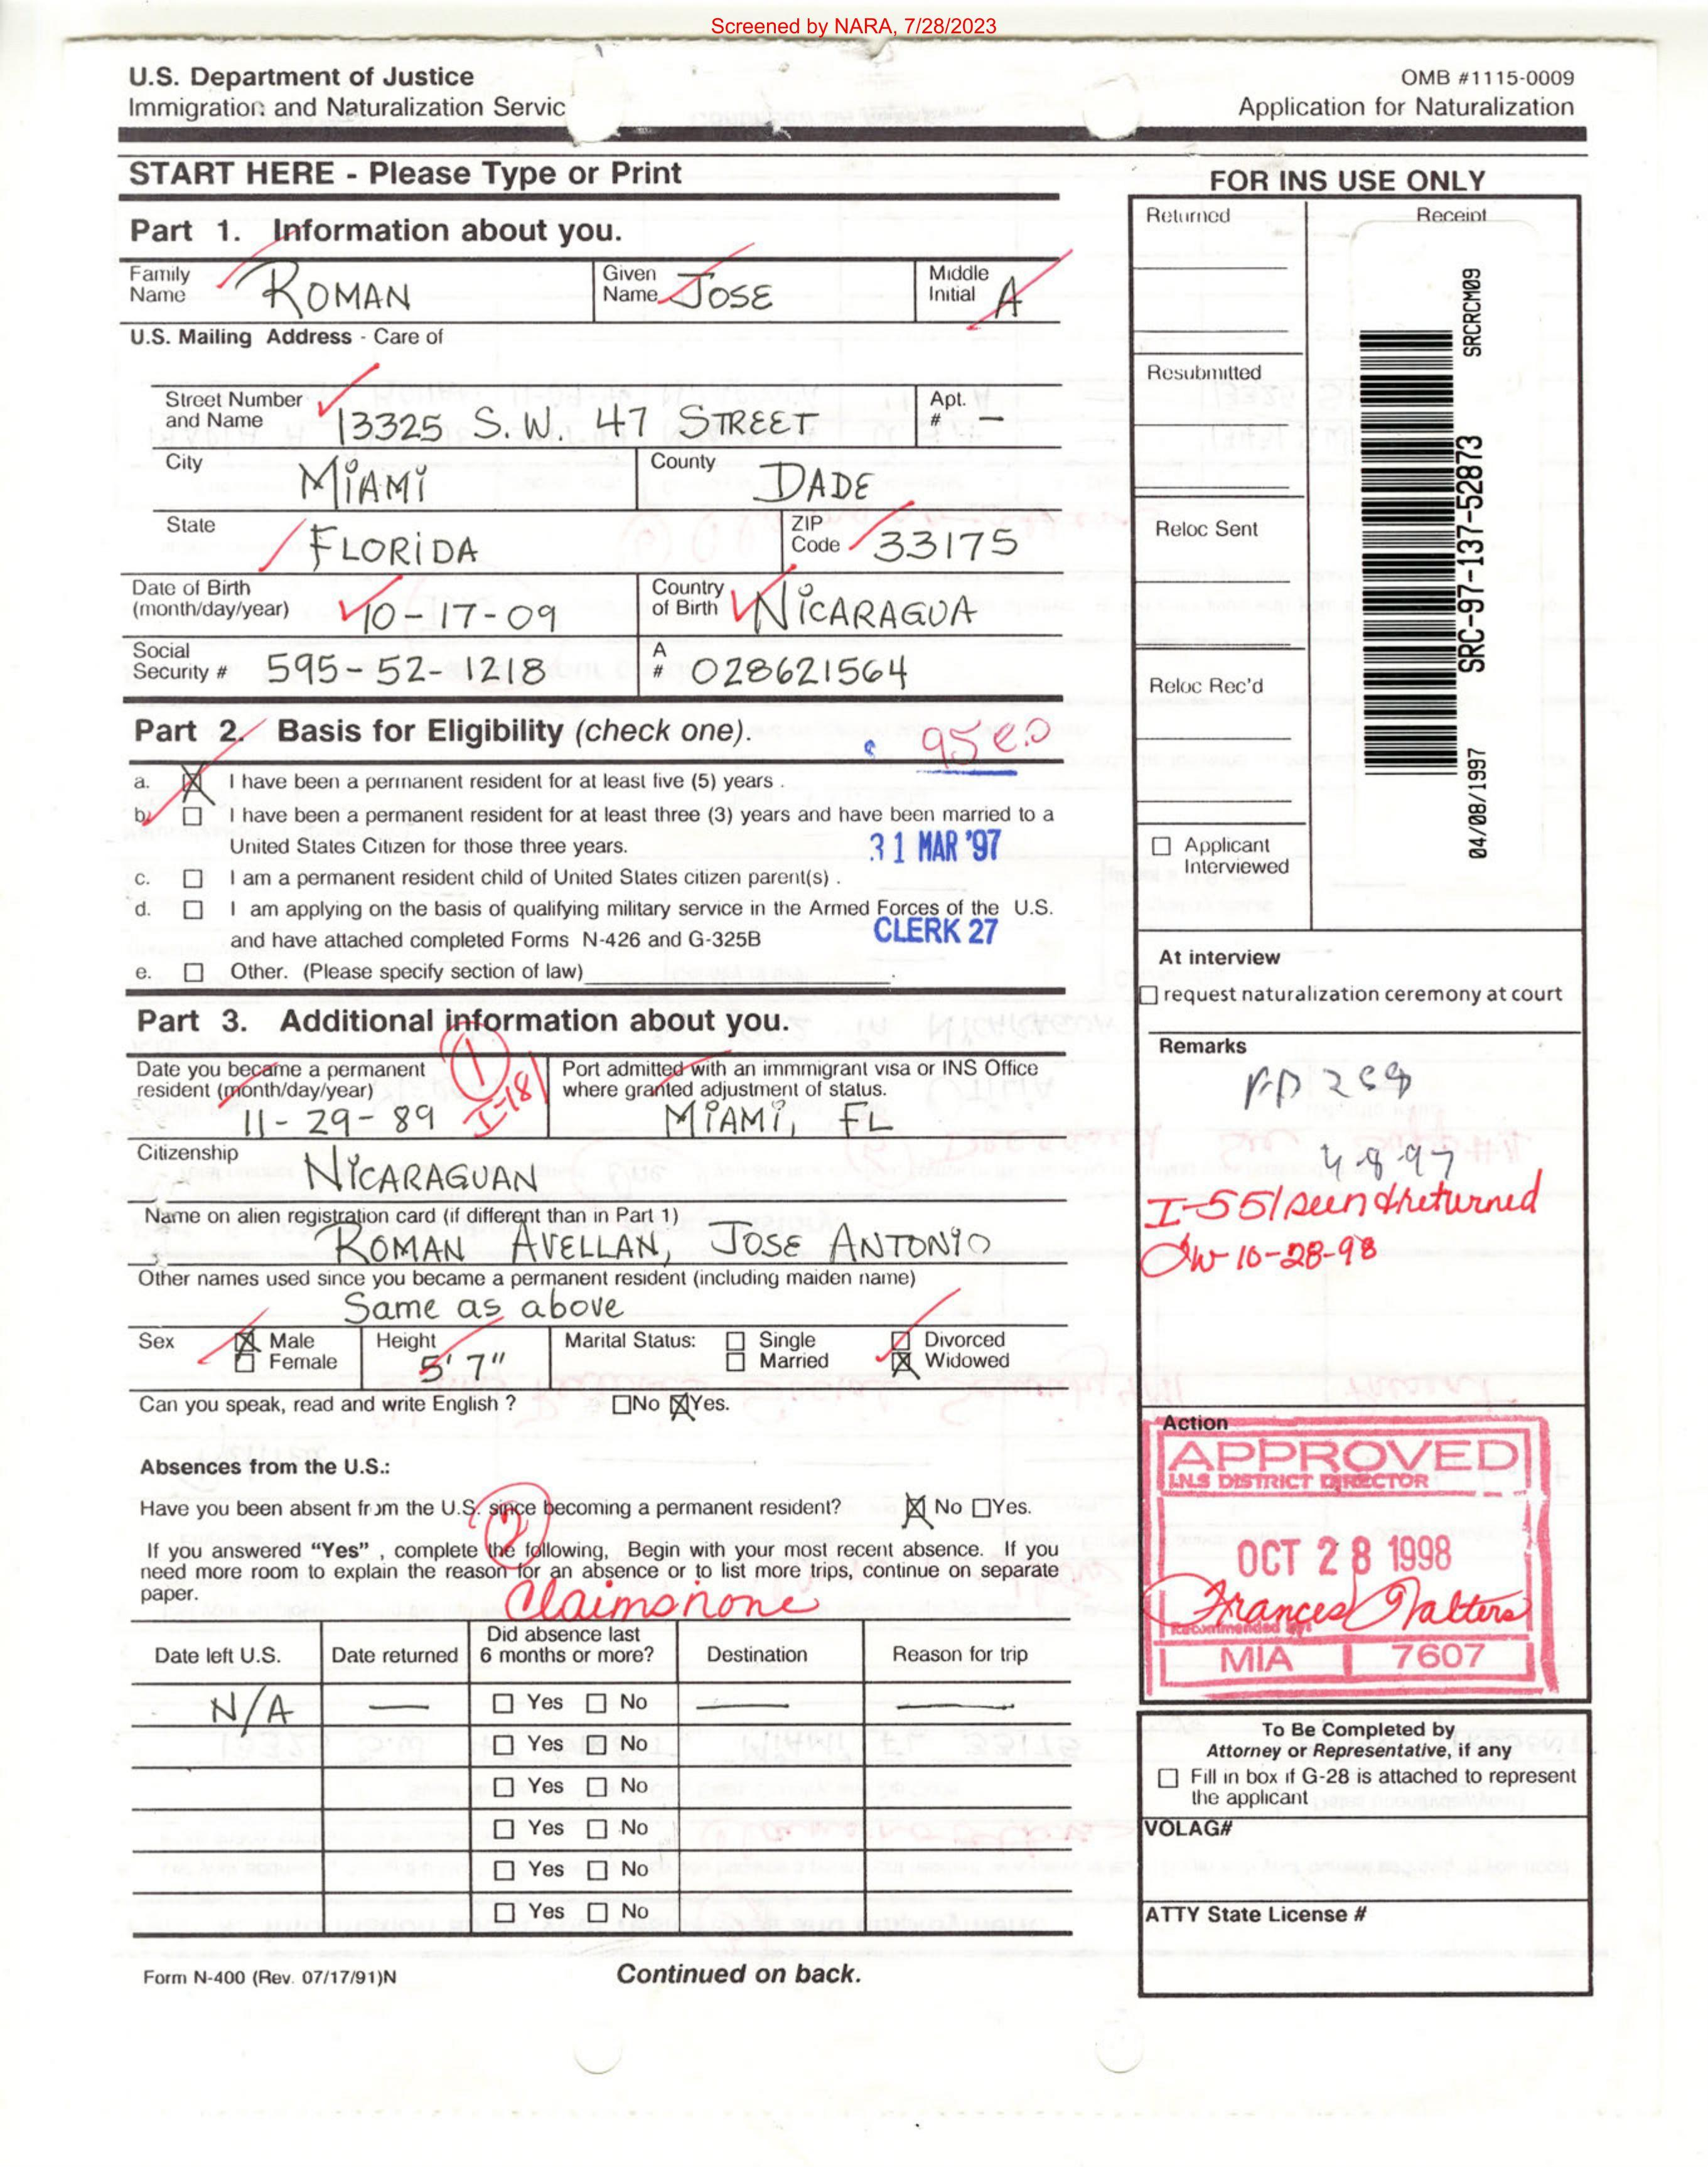 Screened by NARA, 7/28/2023
U.S. Department of Justice
Immigration and Naturalization Servic
OMB #1115-0009
Application for Naturalization
START HERE - Please Type or Print
Part 1. Information about you.
Family Name ROMAN
Given Name JOSE
Middle Initial A
U.S. Mailing Address - Care of
Street Number and Name 13325 S.W. 47 STREET
Apt. # —
City MIAMI
County DADE
State FLORIDA
ZIP Code 33175
Date of Birth (month/day/year) 10-17-09
Country of Birth NICARAGUA
Social Security # 595-52-1218
A # 028621564
Part 2. Basis for Eligibility (check one).
a. I have been a permanent resident for at least five (5) years .
b. I have been a permanent resident for at least three (3) years and have been married to a
United States Citizen for those three years.
31 MAR '97
c. I am a permanent resident child of United States citizen parent(s) .
d. I am applying on the basis of qualifying military service in the Armed Forces of the U.S.
and have attached completed Forms N-426 and G-325B
CLERK 27
e. Other. (Please specify section of law)
Part 3. Additional information about you.
Date you became a permanent resident (month/day/year) 11-29-89
1
I-181
Port admitted with an immmigrant visa or INS Office where granted adjustment of status.
MIAMI, FL
Citizenship NICARAGUAN
Name on alien registration card (if different than in Part 1)
ROMAN AVELLAN, JOSE ANTONIO
Other names used since you became a permanent resident (including maiden name)
Same as above
Sex Male Female
Height 5' 7"
Marital Status: Single Married Divorced Widowed
Can you speak, read and write English ? No Yes.
Absences from the U.S.:
Have you been absent from the U.S. since becoming a permanent resident? No Yes.
2
If you answered "Yes" , complete the following, Begin with your most recent absence. If you
need more room to explain the reason for an absence or to list more trips, continue on separate
paper.
Claims none
Date left U.S. Date returned Did absence last 6 months or more? Destination Reason for trip
N/A — Yes No — —
Yes No
Yes No
Yes No
Yes No
Yes No
Form N-400 (Rev. 07/17/91)N
Continued on back.
FOR INS USE ONLY
Returned
Receipt
Resubmitted
Reloc Sent
Reloc Rec'd
SRCRCM09
SRC-97-137-52873
04/08/1997
Applicant Interviewed
At interview
request naturalization ceremony at court
Remarks
4-8-97
I-551 seen & returned
10-28-98
Action
APPROVED
I.N.S DISTRICT DIRECTOR
OCT 28 1998
Frances Walters
Recommended By:
MIA 7607
To Be Completed by
Attorney or Representative, if any
Fill in box if G-28 is attached to represent
the applicant
VOLAG#
ATTY State License #